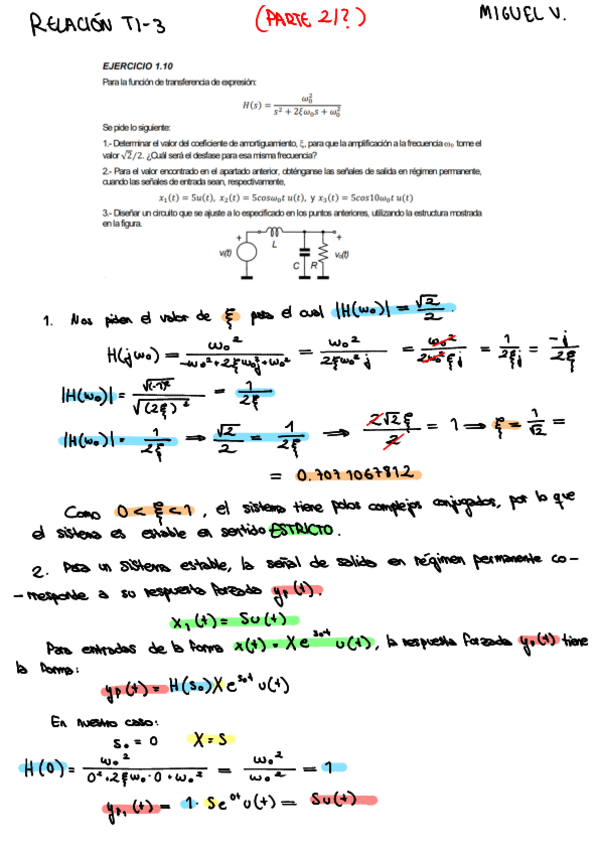 RELACIÓN T1-3 (PARTE 2/?) MIGUEL V.
EJERCICIO 1.10
Para la función de transferencia de expresión:
H(s) = ω₀² / (s² + 2ξω₀s + ω₀²)
Se pide lo siguiente:
1.- Determinar el valor del coeficiente de amortiguamiento, ξ, para que la amplificación a la frecuencia ω₀ tome el
valor √2/2. ¿Cuál será el desfase para esa misma frecuencia?
2.- Para el valor encontrado en el apartado anterior, obténganse las señales de salida en régimen permanente,
cuando las señales de entrada sean, respectivamente,
x₁(t) = 5u(t), x₂(t) = 5cosω₀t u(t), y x₃(t) = 5cos10ω₀t u(t)
3.- Diseñar un circuito que se ajuste a lo especificado en los puntos anteriores, utilizando la estructura mostrada
en la figura.
+ L +
vi(t) C R v₀(t)
1. Nos piden el valor de ξ para el cual |H(ω₀)| = √2/2.
H(jω₀) = ω₀² / (-ω₀² + 2ξω₀²j + ω₀²) = ω₀² / (2ξω₀²j) = ω₀² / (2ω₀²ξj) = 1 / (2ξj) = -j / (2ξ)
|H(ω₀)| = √(-1)² / √(2ξ)² = 1 / (2ξ)
|H(ω₀)| = 1 / (2ξ) ⟹ √2/2 = 1 / (2ξ) ⟹ 2√2ξ / 2 = 1 ⟹ ξ = 1/√2 =
= 0.7071067812
Como 0 < ξ < 1, el sistema tiene polos complejos conjugados, por lo que
el sistema es estable en sentido ESTRICTO.
2. Para un sistema estable, la señal de salida en régimen permanente co-
-rresponde a su respuesta forzada yp(t).
x₁(t) = 5u(t)
Para entradas de la forma x(t) = Xe^(s₀t) u(t), la respuesta forzada yp(t) tiene
la forma:
yp(t) = H(s₀)Xe^(s₀t) u(t)
En nuestro caso:
s₀ = 0 X = 5
H(0) = ω₀² / (0² + 2ξω₀·0 + ω₀²) = ω₀² / ω₀² = 1
yp₁(t) = 1 · 5e^(0t) u(t) = 5u(t)